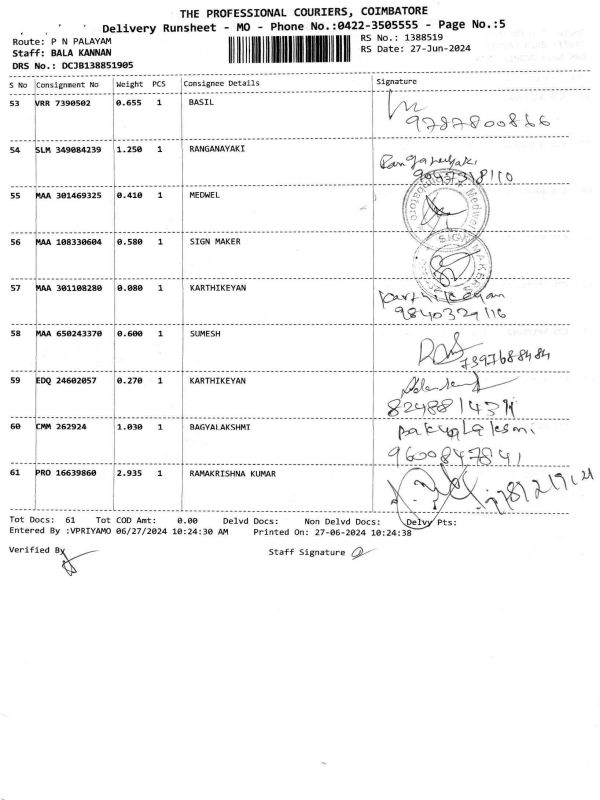 THE PROFESSIONAL COURIERS, COIMBATORE
Delivery Runsheet - MO - Phone No.:0422-3505555 - Page No.:5
Route: P N PALAYAM
RS No.: 1388519
Staff: BALA KANNAN
RS Date: 27-Jun-2024
DRS No.: DCJB138851905
S No Consignment No Weight PCS Consignee Details Signature
53 VRR 7390502 0.655 1 BASIL
9787800866
54 SLM 349084239 1.250 1 RANGANAYAKI
Ranganayaki
9047318110
55 MAA 301469325 0.410 1 MEDWEL
56 MAA 108330604 0.580 1 SIGN MAKER
57 MAA 301108280 0.080 1 KARTHIKEYAN
Karthikeyan
9840329116
58 MAA 650243370 0.600 1 SUMESH
7397688484
59 EDQ 24602057 0.270 1 KARTHIKEYAN
60 CMM 262924 1.030 1 BAGYALAKSHMI
9600847841
61 PRO 16639860 2.935 1 RAMAKRISHNA KUMAR
Tot Docs: 61 Tot COD Amt: 0.00 Delvd Docs: Non Delvd Docs: Delvy Pts:
Entered By :VPRIYAMO 06/27/2024 10:24:30 AM Printed On: 27-06-2024 10:24:38
Verified By
Staff Signature